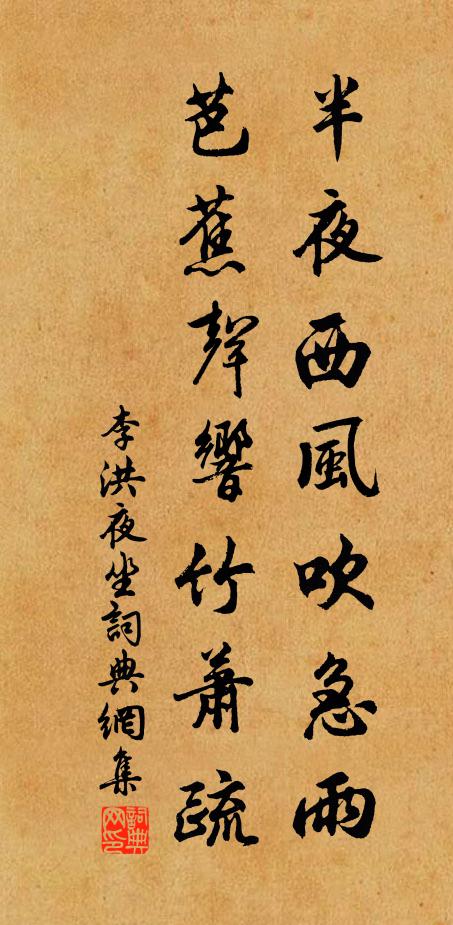 半夜西風吹急雨
芭蕉聲響竹蕭疏
李洪夜坐詞典網集
詞典網印